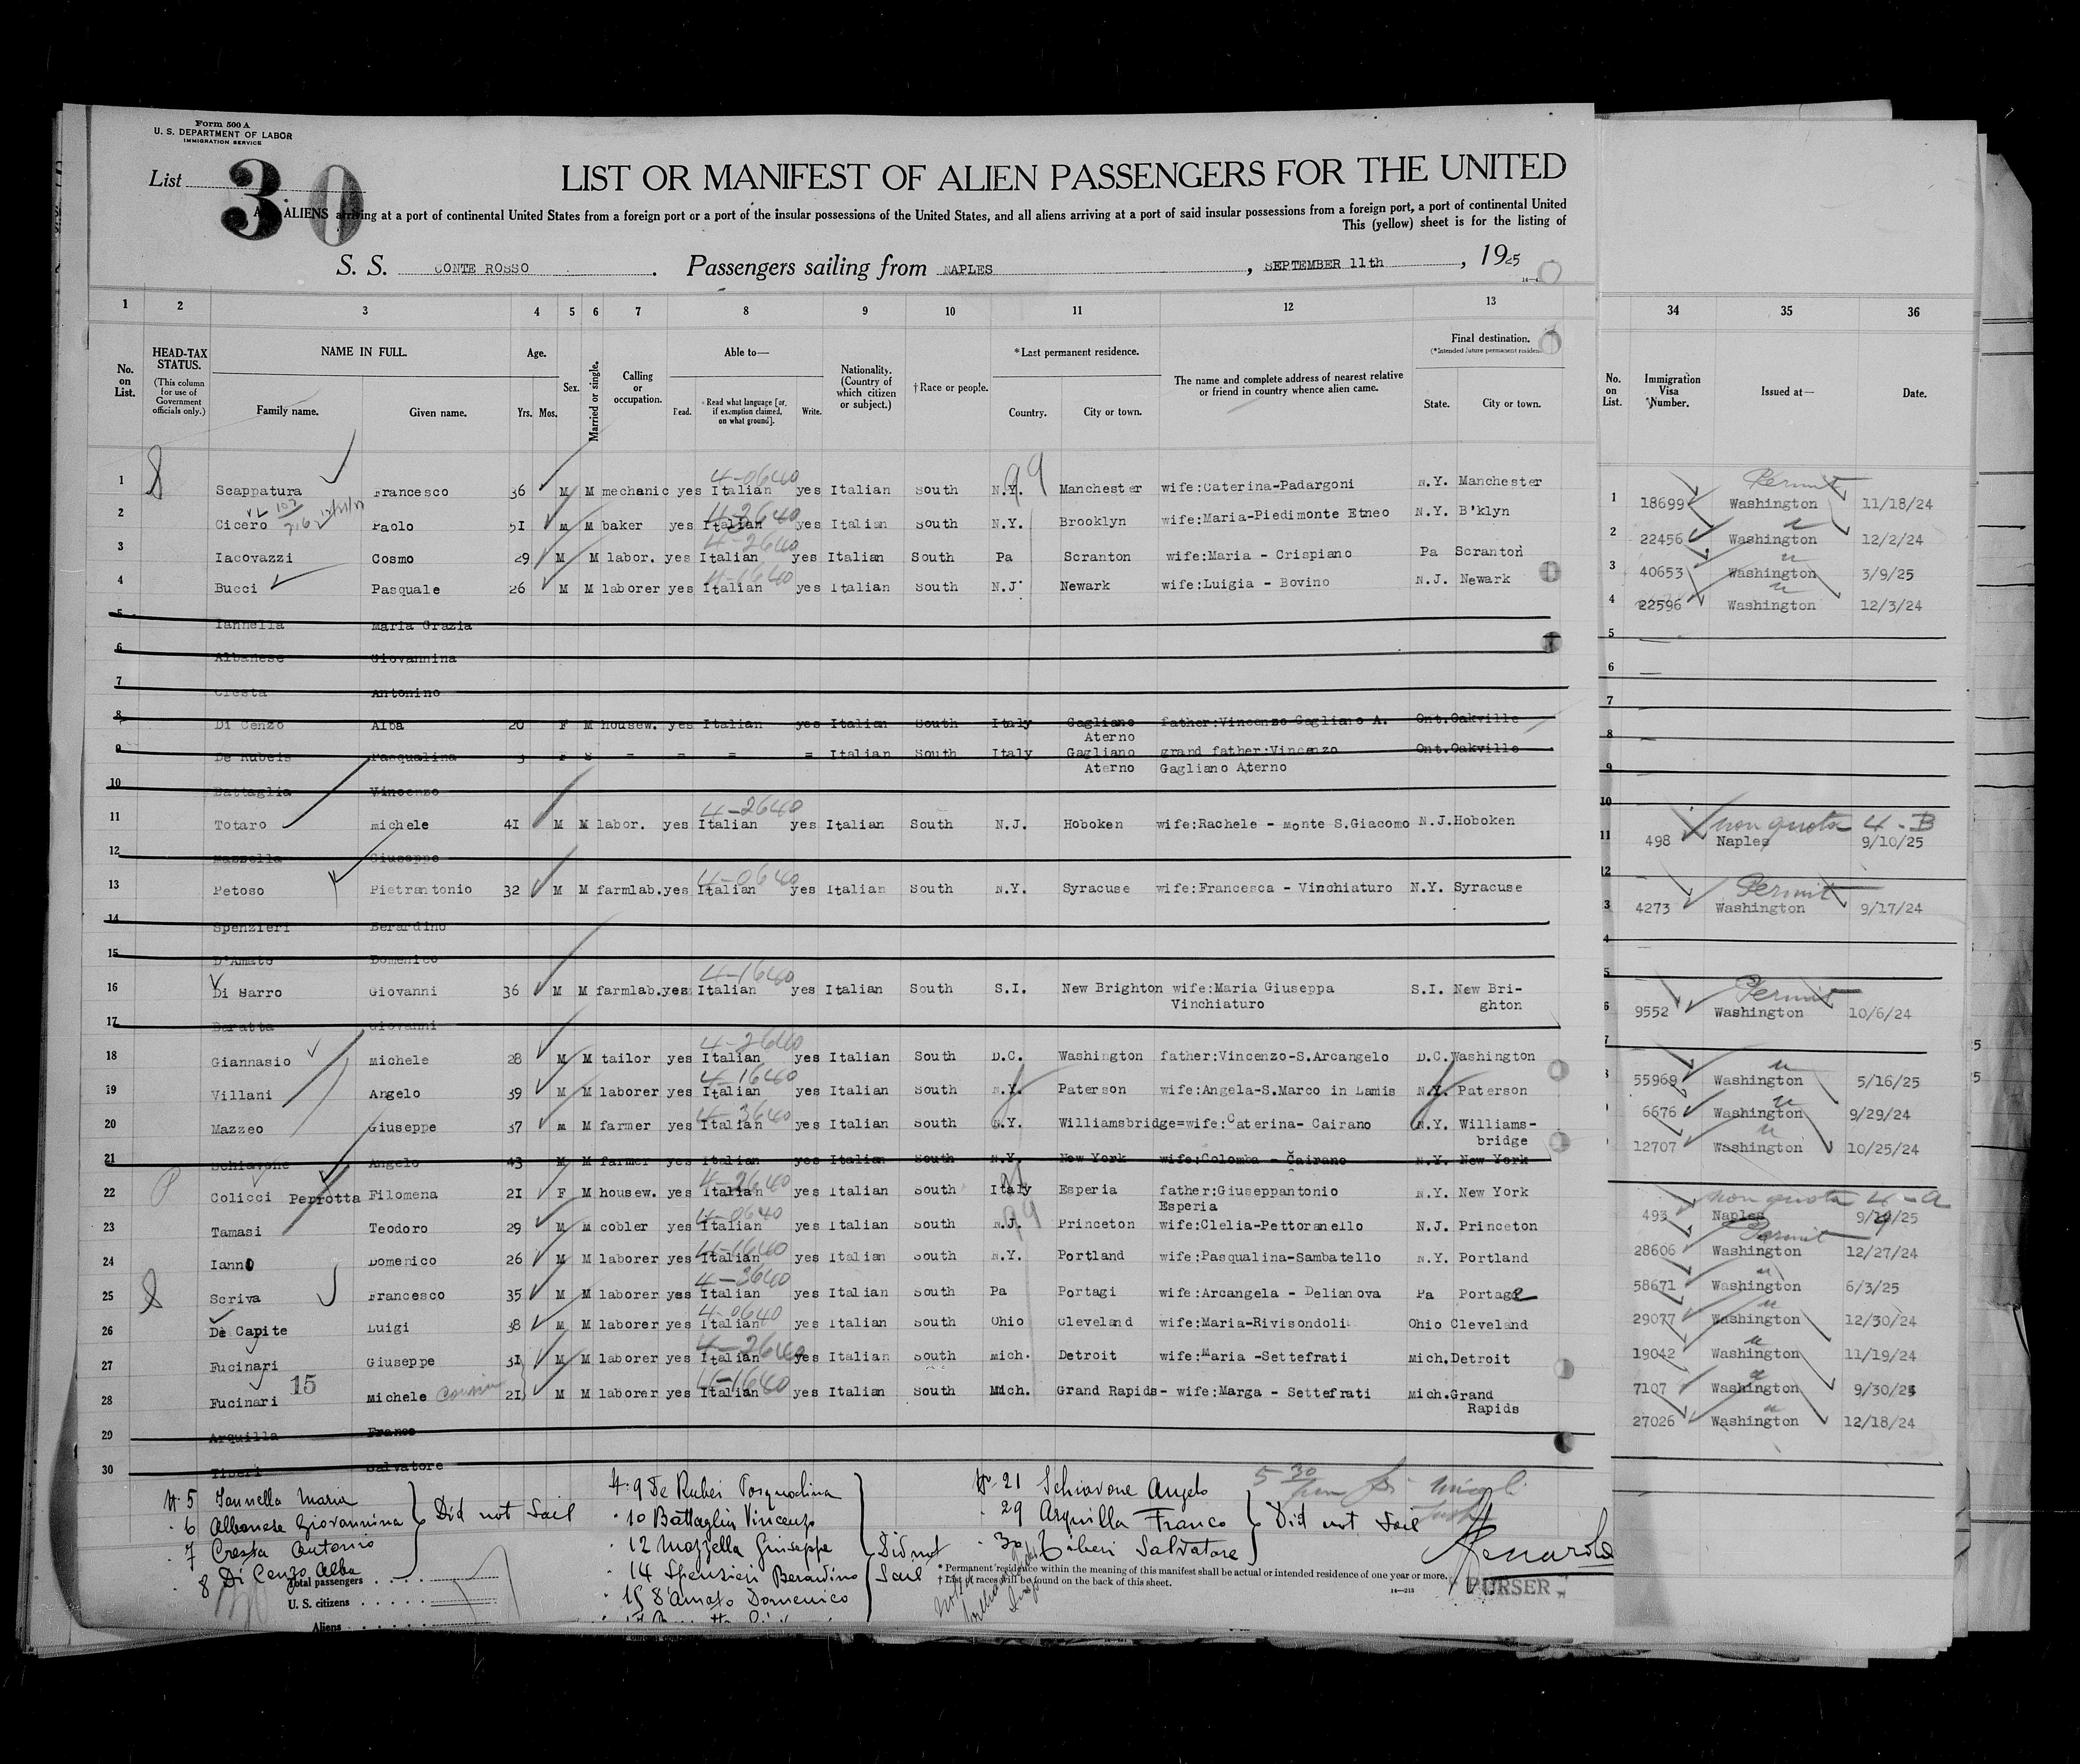 Form 500 A
U. S. DEPARTMENT OF LABOR
IMMIGRATION SERVICE
List 30
LIST OR MANIFEST OF ALIEN PASSENGERS FOR THE UNITED
ALIENS arriving at a port of continental United States from a foreign port or a port of the insular possessions of the United States, and all aliens arriving at a port of said insular possessions from a foreign port, a port of continental United
This (yellow) sheet is for the listing of
S. S. CONTE ROSSO. Passengers sailing from NAPLES, SEPTEMBER 11th, 1925
1 2 3 4 5 6 7 8 9 10 11 12 13 34 35 36
No. on List.
HEAD-TAX STATUS.
(This column for use of Government officials only.)
NAME IN FULL.
Family name. Given name.
Age.
Yrs. Mos.
Sex.
Married or single.
Calling or occupation.
Able to—
Read. Read what language [or, if exemption claimed, on what ground]. Write.
Nationality. (Country of which citizen or subject.)
†Race or people.
*Last permanent residence.
Country. City or town.
The name and complete address of nearest relative or friend in country whence alien came.
Final destination.
(*Intended future permanent residence)
State. City or town.
No. on List.
Immigration Visa Number.
Issued at—
Date.
4-0640 99 Permit
1 Scappatura Francesco 36 M M mechanic yes Italian yes Italian South N.Y. Manchester wife:Caterina-Padargoni N.Y. Manchester 1 18699 Washington 11/18/24
4-3640
2 Cicero Paolo 51 M M baker yes Italian yes Italian South N.Y. Brooklyn wife:Maria-Piedimonte Etneo N.Y. B'klyn 2 22456 Washington 12/2/24
4-2640
3 Iacovazzi Cosmo 29 M M labor. yes Italian yes Italian South Pa Scranton wife:Maria - Crispiano Pa Scranton 3 40653 Washington 3/9/25
4-1640
4 Bucci Pasquale 26 M M laborer yes Italian yes Italian South N.J Newark wife:Luigia - Bovino N.J. Newark 4 22596 Washington 12/3/24
5 Iannella Maria Grazia 5
6 Albanese Giovannina 6
7 Cresta Antonino 7
8 Di Cenzo Alba 20 F M housew. yes Italian yes Italian South Italy Gagliano Aterno father:Vincenzo Gagliano A. Ont.Oakville 8
9 De Rubeis Pasqualina 3 F S = = = = Italian South Italy Gagliano Aterno grand father:Vincenzo Gagliano Aterno Ont.Oakville 9
10 Battaglia Vincenzo 10
4-2640 non quota 4-B
11 Totaro michele 41 M M labor. yes Italian yes Italian South N.J. Hoboken wife:Rachele - monte S.Giacomo N.J.Hoboken 11 498 Naples 9/10/25
12 Mazzella Giuseppe 12
4-0640 Permit
13 Petoso Pietrantonio 32 M M farmlab.yes Italian yes Italian South N.Y. Syracuse wife:Francesca - Vinchiaturo N.Y. Syracuse 3 4273 Washington 9/17/24
14 Spenzieri Berardino 4
15 D'Amato Domenico 5
4-1640 Permit
16 Di Sarro Giovanni 36 M M farmlab.yes Italian yes Italian South S.I. New Brighton wife:Maria Giuseppa Vinchiaturo S.I. New Brighton 6 9552 Washington 10/6/24
17 Baratta Giovanni 7
4-2640
18 Giannasio Michele 28 M M tailor yes Italian yes Italian South D.C. Washington father:Vincenzo-S.Arcangelo D.C.Washington 8 55969 Washington 5/16/25
4-1640
19 Villani Angelo 39 M M laborer yes Italian yes Italian South N.Y. Paterson wife:Angela-S.Marco in Lamis N.Y. Paterson 6676 Washington 9/29/24
4-3640
20 Mazzeo Giuseppe 37 m M farmer yes Italian yes Italian South N.Y. Williamsbridge=wife:Caterina- Cairano N.Y. Williams-bridge 12707 Washington 10/25/24
21 Schiavone Angelo 43 M M farmer yes Italian yes Italian South N.Y. New York wife:Colomba - Cairano N.Y. New York
4-2640 non quota 4-a
22 Colicci Perrotta Filomena 21 F M housew. yes Italian yes Italian South Italy Esperia father:Giuseppantonio Esperia N.Y. New York 493 Naples 9/10/25
4-0640 99 Permit
23 Tamasi Teodoro 29 M M cobler yes Italian yes Italian South N.J. Princeton wife:Clelia-Pettoranello N.J. Princeton 28606 Washington 12/27/24
4-1640
24 Ianno Domenico 26 M M laborer yes Italian yes Italian South N.Y. Portland wife:Pasqualina-Sambatello N.Y. Portland 58671 Washington 6/3/25
4-3640
25 Scriva Francesco 35 M M laborer yes Italian yes Italian South Pa Portagi wife:Arcangela - Delianova Pa Portage 29077 Washington 12/30/24
4-0640
26 De Capite Luigi 38 M M laborer yes Italian yes Italian South Ohio Cleveland wife:Maria-Rivisondoli Ohio Cleveland 19042 Washington 11/19/24
4-2640
27 Fucinari Giuseppe 31 M M laborer yes Italian yes Italian South Mich. Detroit wife:Maria -Settefrati Mich.Detroit 7107 Washington 9/30/24
15 4-1640
28 Fucinari Michele cousin 21 M M laborer yes Italian yes Italian South Mich. Grand Rapids- wife:Marga - Settefrati Mich.Grand Rapids 27026 Washington 12/18/24
29 Arquilla Franco
30 Tiberi Salvatore
N. 5 Iannella Maria
6 Albanese Giovannina
7 Cresta Antonio
8 Di Cenzo Alba
Did not Sail
N. 9 De Rubei Pasqualina
10 Battaglia Vincenzo
12 Mazzella Giuseppe
14 Spensieri Berardino
15 D'Amato Domenico
Did not Sail
N. 21 Schiavone Angelo
29 Arquilla Franco
30 Tiberi Salvatore
Did not Sail
5 30
Total passengers
U. S. citizens
Aliens
* Permanent residence within the meaning of this manifest shall be actual or intended residence of one year or more.
† List of races will be found on the back of this sheet.
14—213
PURSER